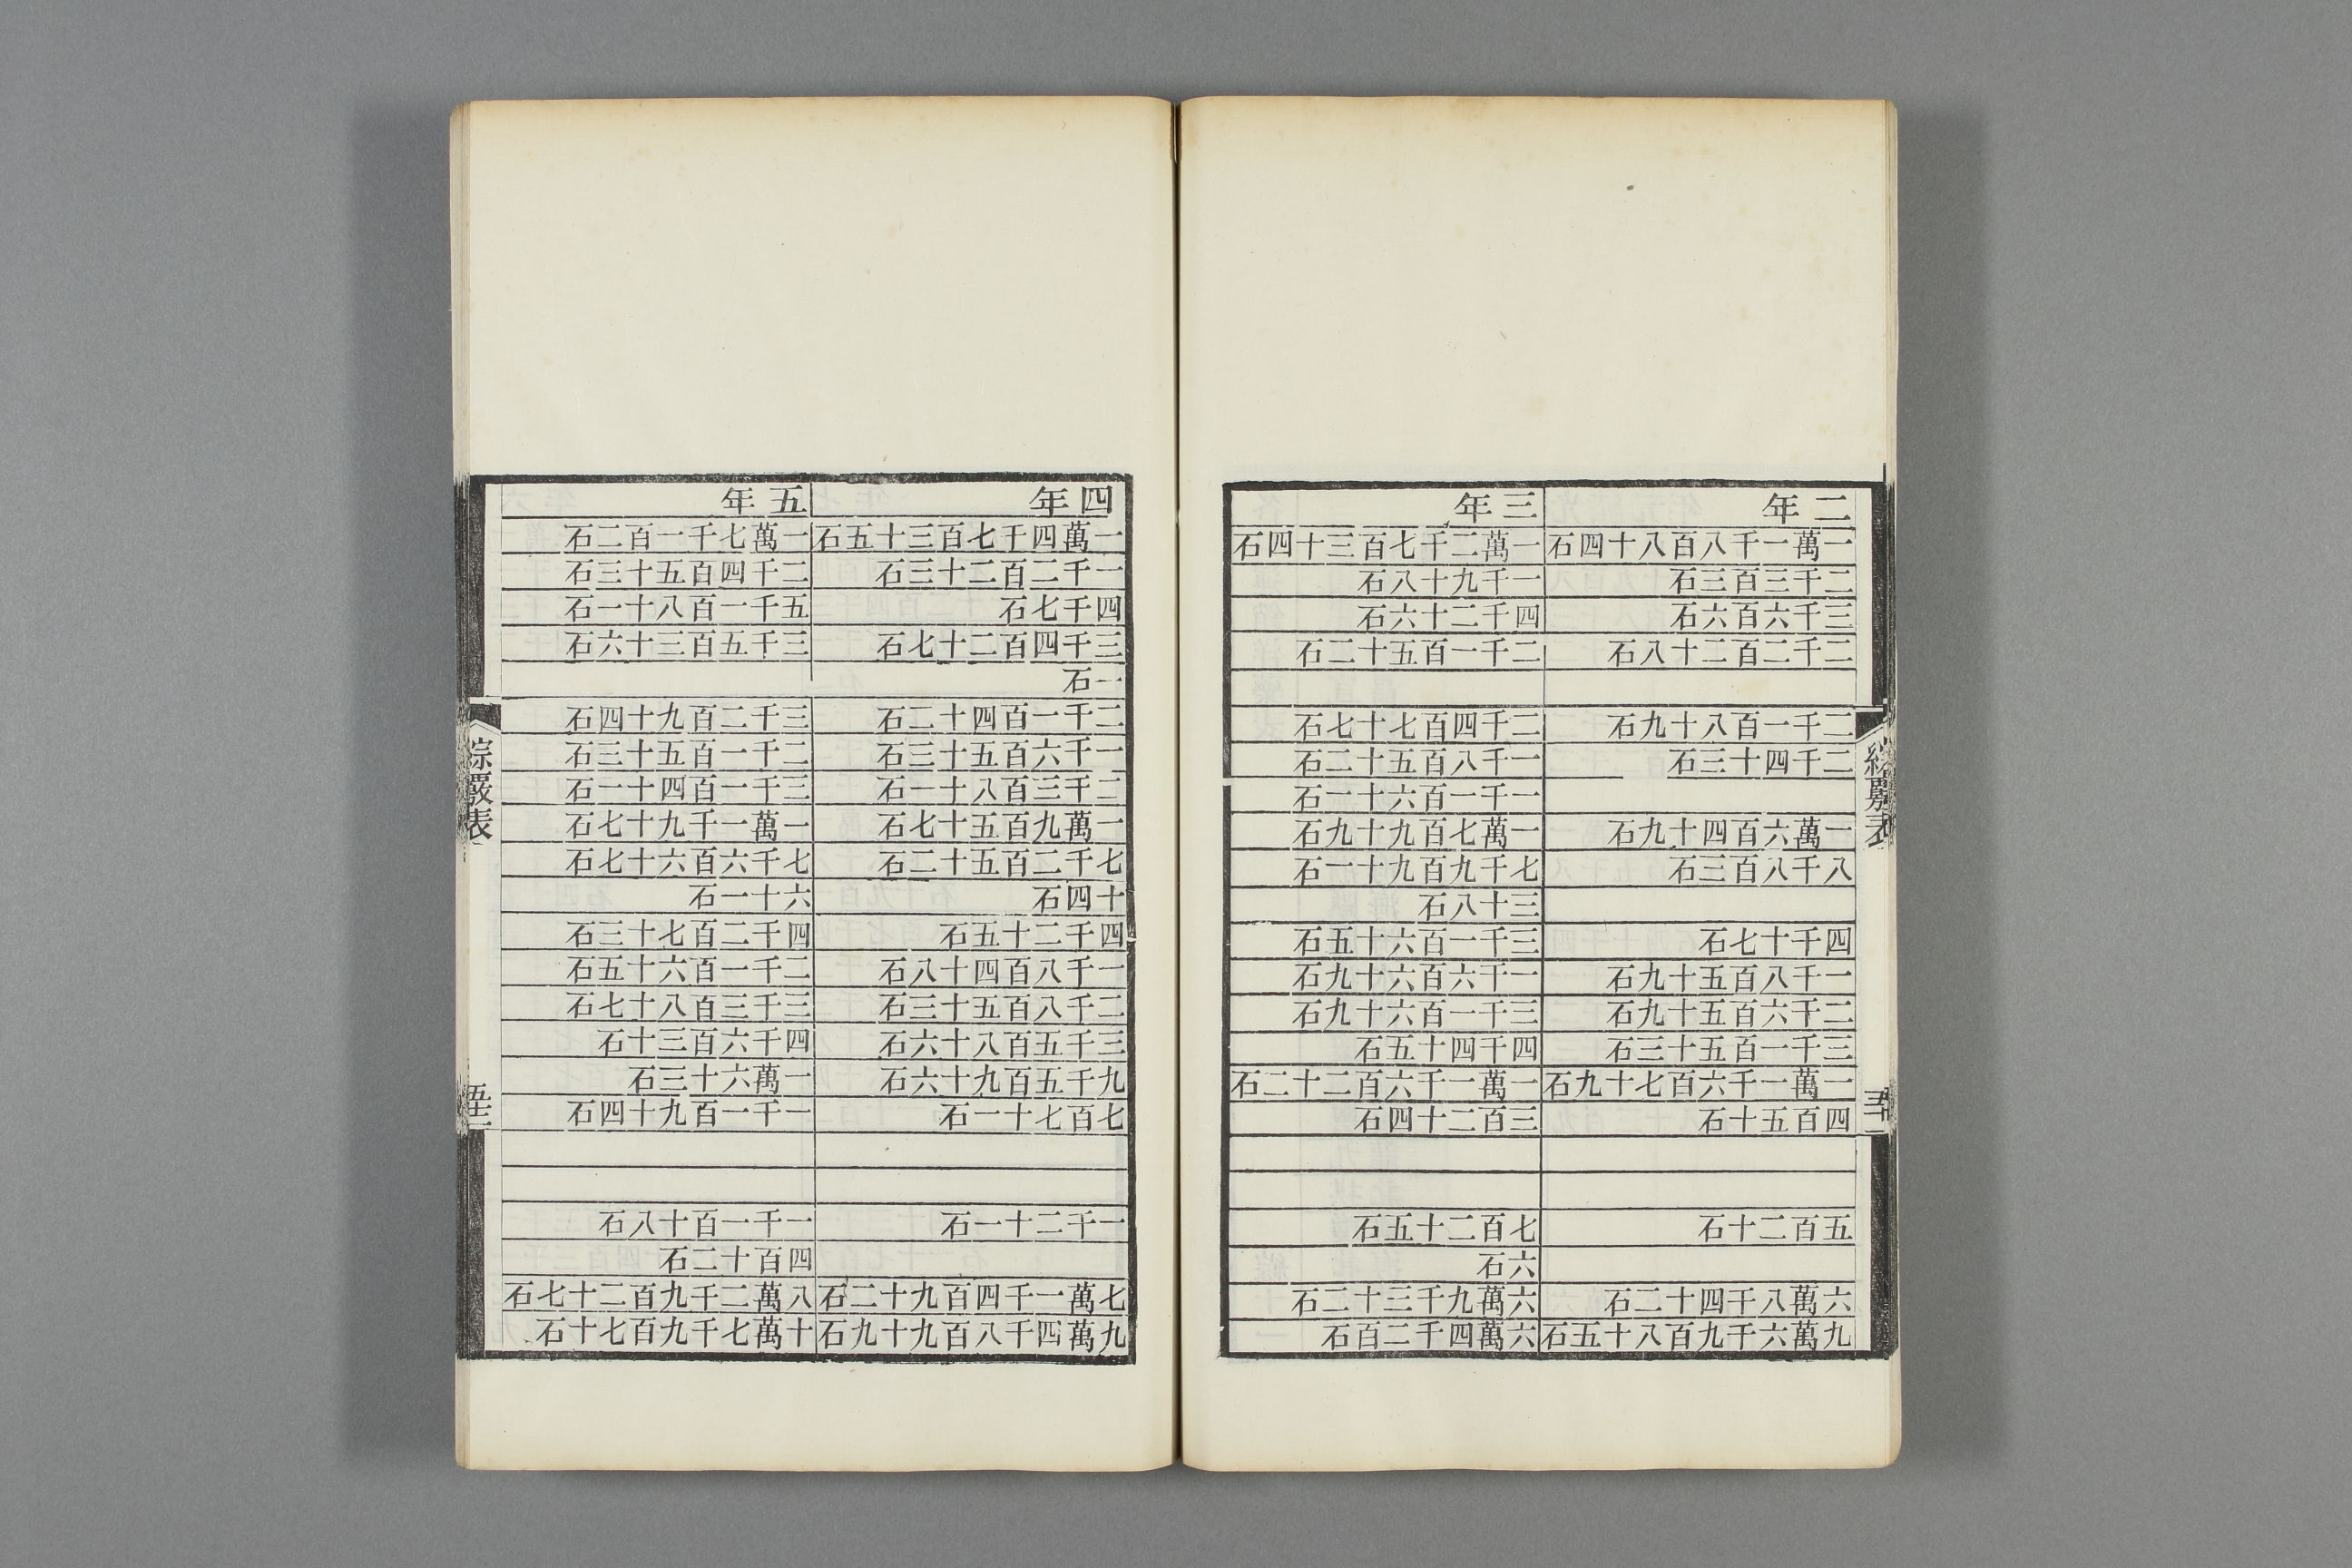 二年
一萬一千八百八十四石
二千三百三石
三千六百六石
二千二百二十八石
二千一百八十九石
二千四十三石
一萬六百四十九石
八千八百三石
四千十七石
一千八百五十九石
二千六百五十九石
三千一百五十三石
一萬一千六百七十九石
四百五十石
五百二十石
六萬八千四十二石
九萬六千九百八十五石
三年
一萬二千七百三十四石
一千九十八石
四千二十六石
二千一百五十二石
二千四百七十七石
一千八百五十二石
一千一百六十一石
一萬七百九十九石
七千九百九十一石
三十八石
三千一百六十五石
一千六百六十九石
三千一百六十九石
四千四十五石
一萬一千六百二十二石
三百二十四石
七百二十五石
六石
六萬九千三十二石
六萬四千二百石
四年
一萬四千七百三十五石
一千二百二十三石
四千七石
三千四百二十七石
一石
二千一百四十二石
一千六百五十三石
二千三百八十一石
一萬九百五十七石
七千二百五十二石
十四石
四千二十五石
一千八百四十八石
二千八百五十三石
三千五百八十六石
九千五百九十六石
七百七十一石
一千二十一石
七萬一千四百九十二石
九萬四千八百九十九石
五年
一萬七千一百二石
二千四百五十三石
五千一百八十一石
三千五百三十六石
三千二百九十四石
二千一百五十三石
三千一百四十一石
一萬一千九十七石
七千六百六十七石
六十一石
四千二百七十三石
二千一百六十五石
三千三百八十七石
四千六百三十石
一萬六十三石
一千一百九十四石
一千一百十八石
四百十二石
八萬二千九百二十七石
十萬七千九百七十石
綜覈表